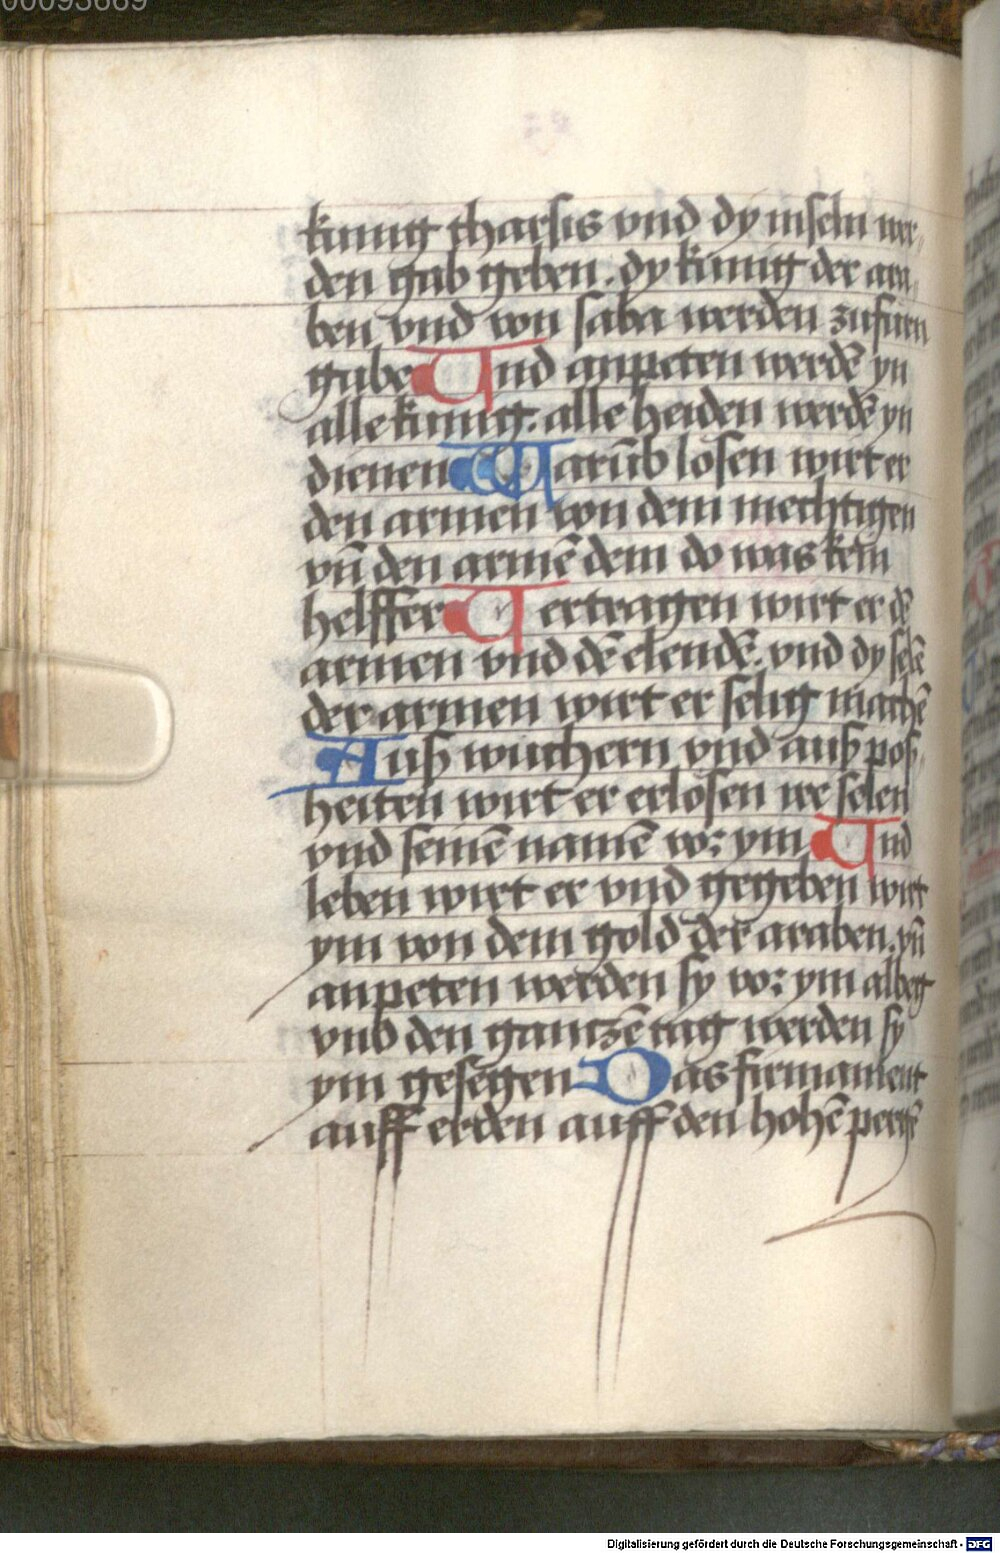 00093669
kunig tharsis vnd dy inseln wer„
den gab geben. dy kunig der ara„
ben vnd von saba werden zufurn
gabe Vnd anpeten werdē yn
alle kunig. alle heiden werdē yn
dienen Warūb losen wirt er
den armen von dem mechtigen
vn̄ den armē dem do was kein
helffer Vertragen wirt er dē
armen vnd dē elendē. vnd dy selē
der armen wirt er selig machē
Auß wuchern vnd auß poß„
heiten wirt er erlosen ire selen
vnd seinē namē vor ym Vnd
leben wirt er vnd gegeben wirt
ym von dem gold der araben. vn̄
anpeten werden sy vor ym albeg
vnd den gantzē tag werden sy
ym gesegen Das firmament
auff erden auff den hohē pergē
Digitalisierung gefördert durch die Deutsche Forschungsgemeinschaft - DFG